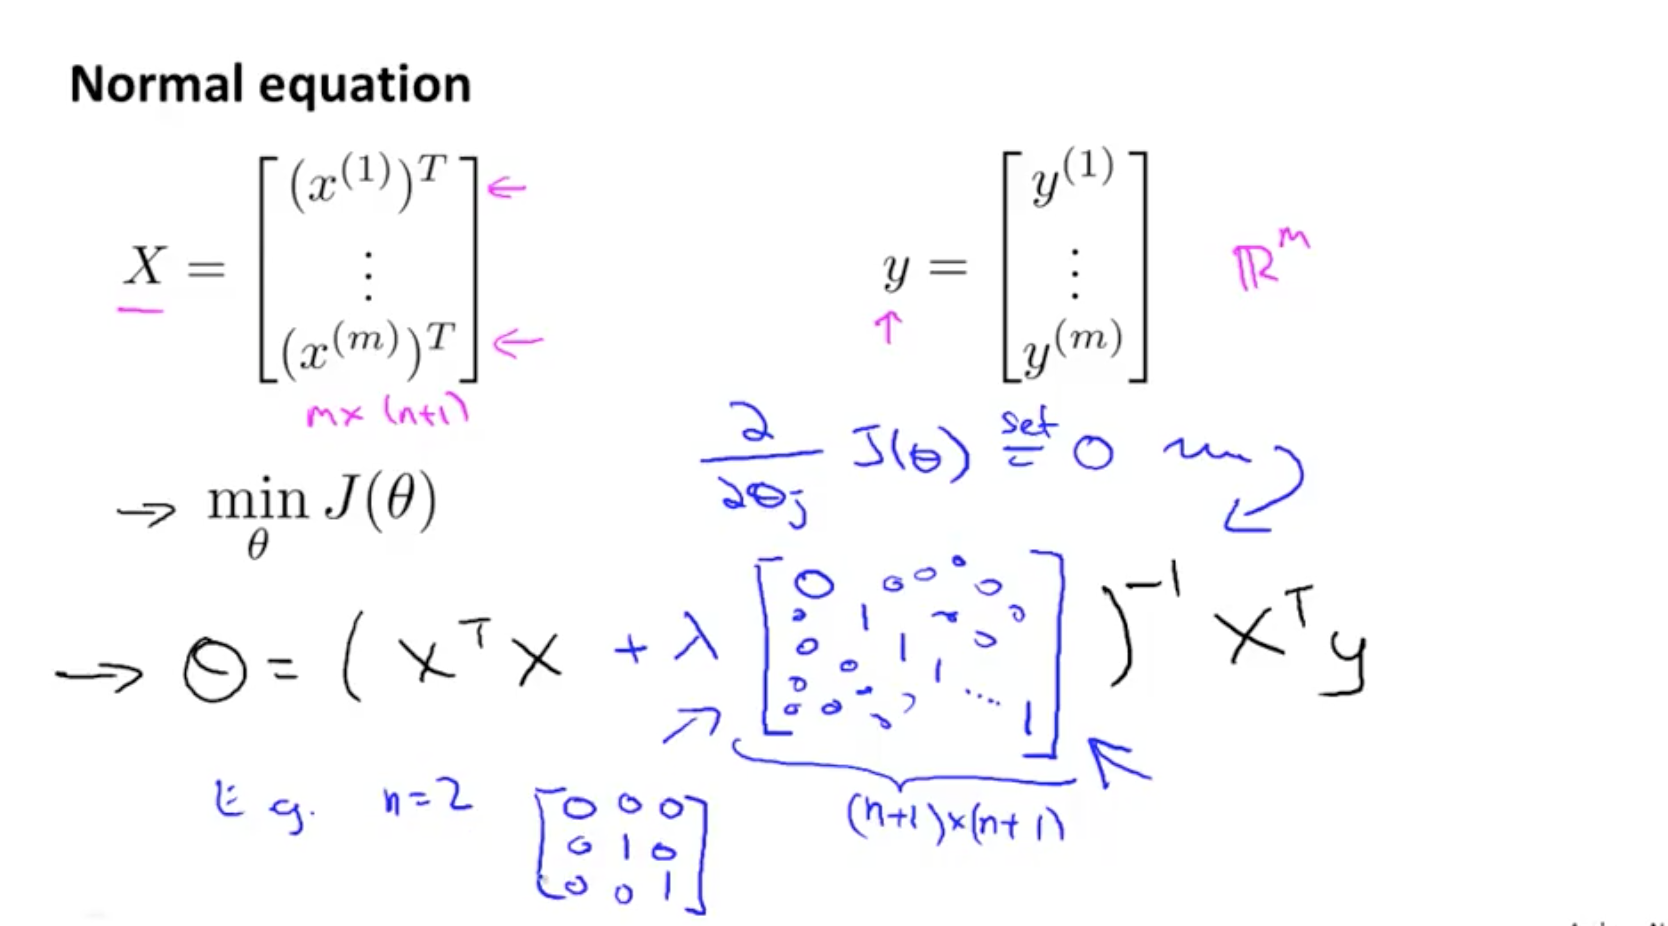 Normal equation
X = [ (x^(1))^T ⋮ (x^(m))^T ] ←  ←
m × (n+1)
y = [ y^(1) ⋮ y^(m) ] ℝ^m
↑
→ min_θ J(θ)
∂/∂θ_j J(θ) set = 0
→ θ = ( X^T X + λ [ 0 0 0 0 0 0 1 0 0 1 0 0 0 1 0 0 0 .... 1 ] )^-1 X^T y
(n+1)×(n+1)
E.g. n=2 [ 0 0 0
0 1 0
0 0 1 ]